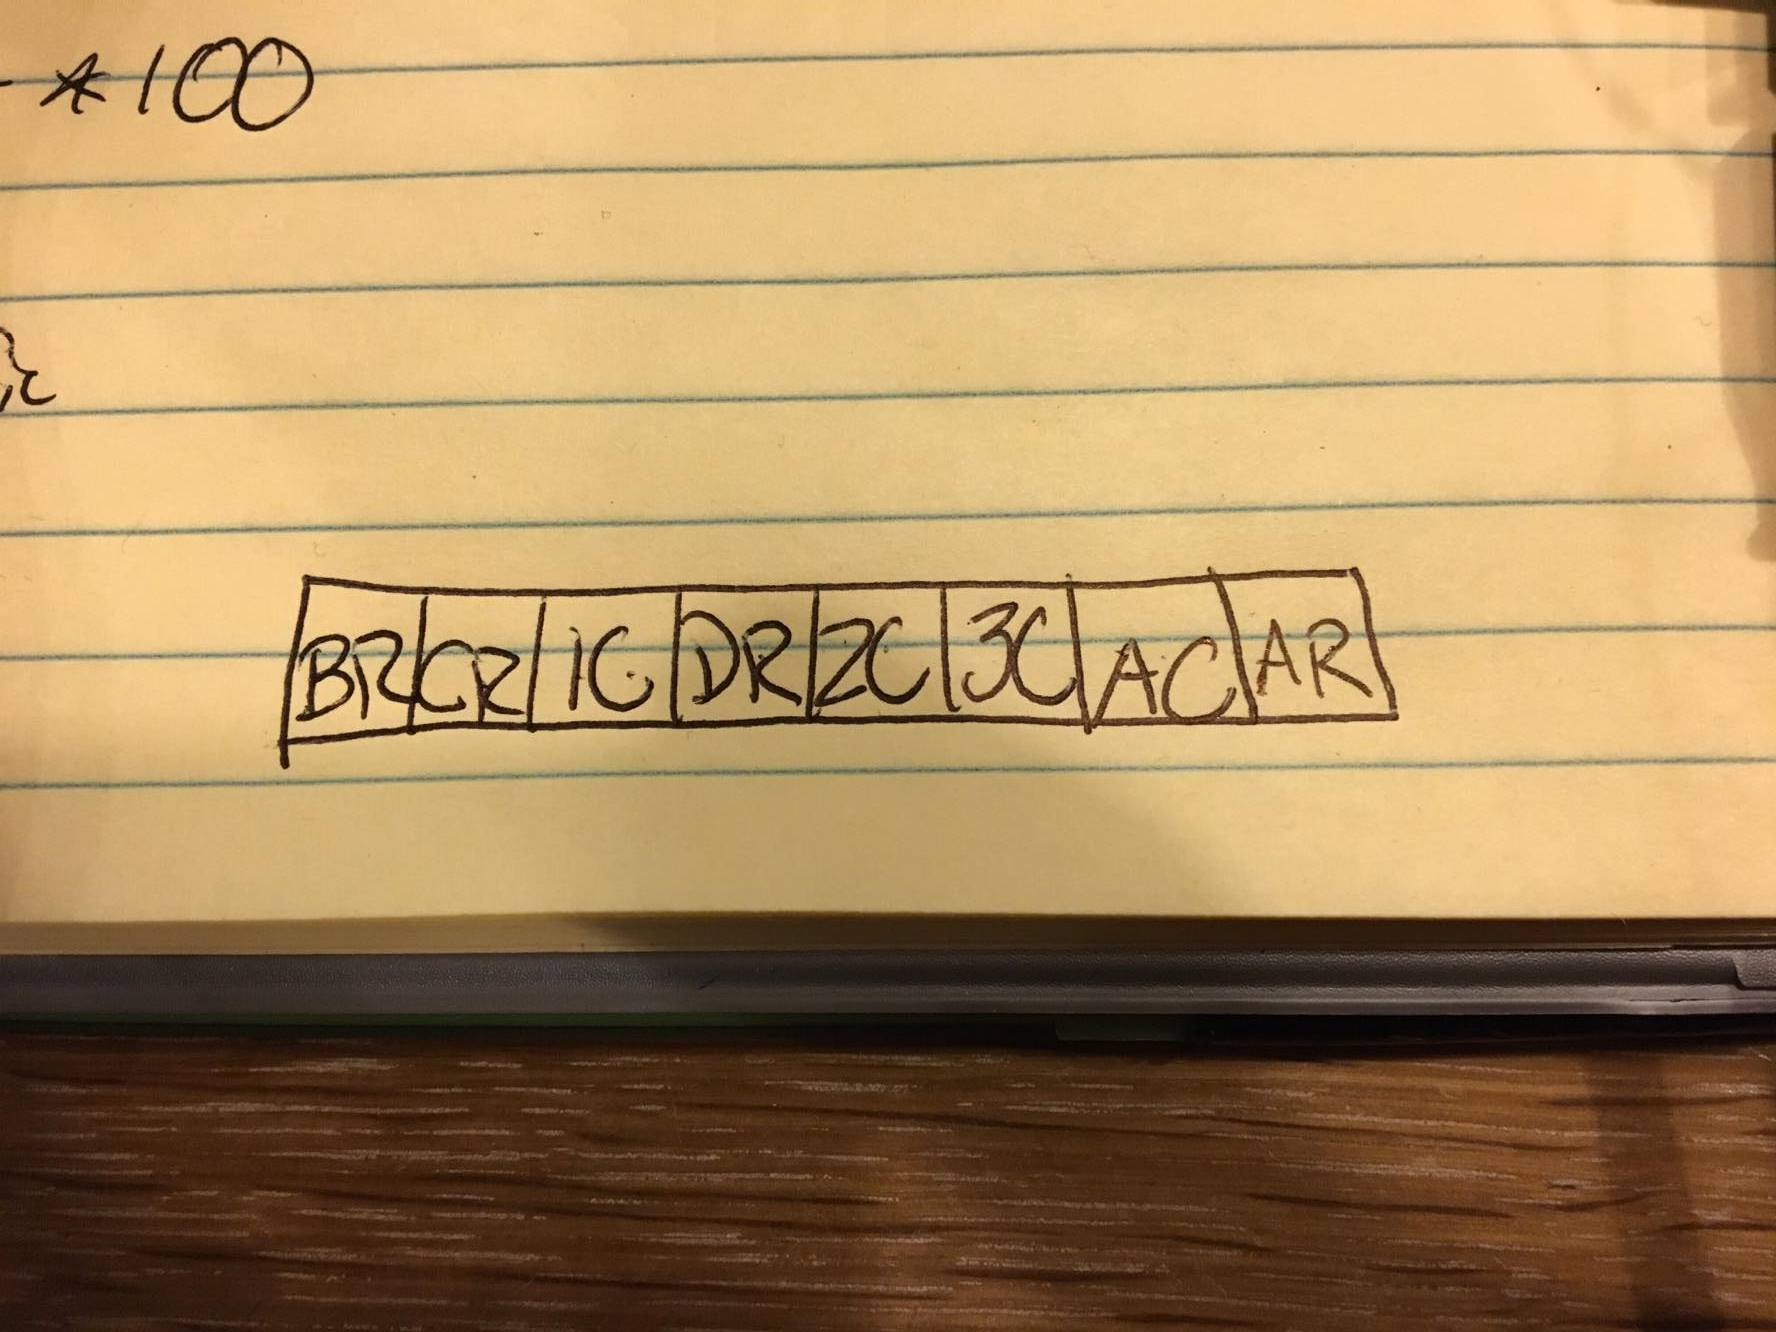 *100
BR CR 1C DR 2C 3C AC AR